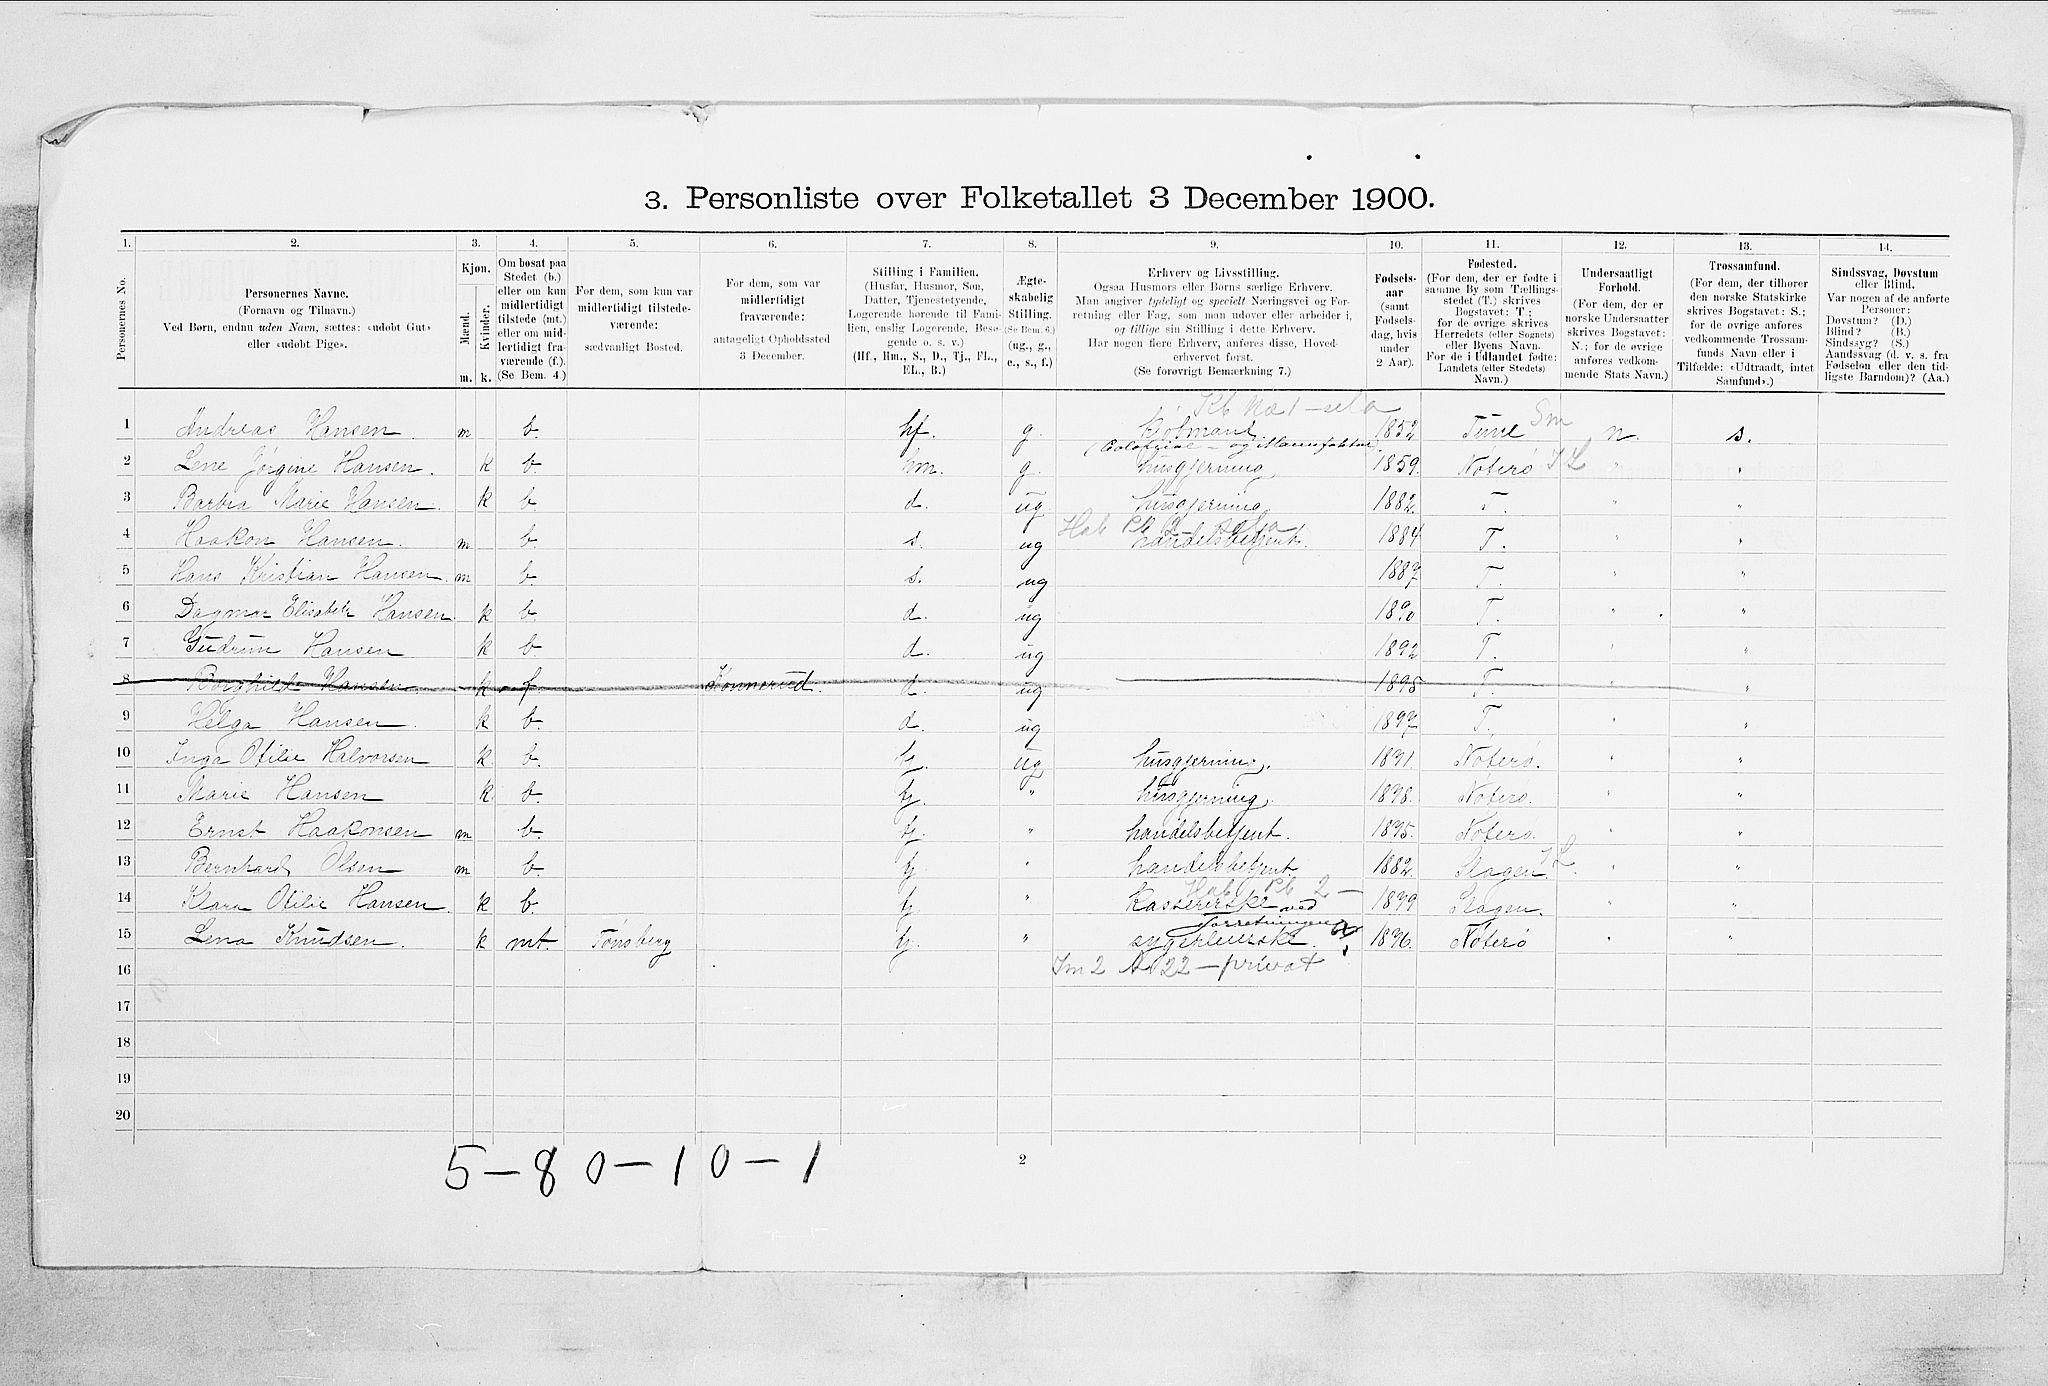 3. Personliste over Folketallet 3 December 1900.
1. 2. 3. 4. 5. 6. 7. 8. 9. 10. 11. 12. 13. 14.
Personernes No.
Personernes Navne.
(Fornavn og Tilnavn.)
Ved Børn, endnu uden Navn, sættes: «udøbt Gut»
eller «udøbt Pige».
Kjøn.
Mænd.
Kvinder.
m. k.
Om bosat paa
Stedet (b.)
eller om kun
midlertidigt
tilstede (mt.)
eller om mid-
lertidigt fra-
værende (f.).
(Se Bem. 4.)
For dem, som kun var
midlertidigt tilstede-
værende:
sædvanligt Bosted.
For dem, som var
midlertidigt
fraværende:
antageligt Opholdssted
3 December.
Stilling i Familien.
(Husfar, Husmor, Søn,
Datter, Tjenestetyende,
Logerende hørende til Fami-
lien, enslig Logerende, Besø-
gende o. s. v.)
(Hf., Hm., S., D., Tj., FL.,
EL., B.)
Ægte-
skabelig
Stilling.
(Se Bem. 6.)
(ug., g.,
e., s., f.)
Erhverv og Livsstilling.
Ogsaa Husmors eller Børns særlige Erhverv.
Man angiver tydeligt og specielt Næringsvei og For-
retning eller Fag, som man udøver eller arbeider i,
og tillige sin Stilling i dette Erhverv.
Har nogen flere Erhverv, anføres disse, Hoved-
erhvervet først.
(Se forøvrigt Bemærkning 7.)
Fødsels-
aar
(samt
Fødsels-
dag, hvis
under
2 Aar).
Fødested.
(For dem, der er fødte i
samme By som Tællings-
stedet (T.) skrives
Bogstavet: T;
for de øvrige skrives
Herredets (eller Sognets)
eller Byens Navn.
For de i Udlandet fødte:
Landets (eller Stedets)
Navn.)
Undersaatligt
Forhold.
(For dem, der er
norske Undersaatter
skrives Bogstavet:
N.; for de øvrige
anføres vedkom-
mende Stats Navn.)
Trossamfund.
(For dem, der tilhører
den norske Statskirke
skrives Bogstavet: S.;
for de øvrige anføres
vedkommende Trossam-
funds Navn eller i
Tilfælde: «Udtraadt, intet
Samfund».)
Sindssvag, Døvstum
eller Blind.
Var nogen af de anførte
Personer:
Døvstum? (D.)
Blind? (B.)
Sindssyg? (S.)
Aandssvag (d. v. s. fra
Fødselen eller den tid-
ligste Barndom)? (Aa.)
1 Andreas Hansen. m b. hf. g. Kjøbmand 1852 Tune Sm n. s.
2 Lene Jørgine Hansen. k b. hm. g. husgjerning 1859. Nøterø JL " "
3 Barbra Marie Hansen. k b d. ug husgjerning 1882. T. " "
4 Haakon Hansen. m b. s. ug handelsbetjent. 1884 T. " "
5 Hans Kristian Hansen. m b. s. ug 1887 T. " "
6 Dagmar Elisabeth Hansen. k b. d. ug 1890 T. " "
7 Gudrun Hansen k b. d. ug 1892 T. " "
8 Borghild Hansen k f. Konnerud. d. ug 1895 T. " "
9 Helga Hansen. k b. d. ug 1897 T. " "
10 Inga Otilie Halvorsen k. b. tj. ug husgjerning. 1891. Nøterø. " "
11 Marie Hansen k. b. tj. " husgjerning. 1898. Nøterø. " "
12 Ernst Haakonsen m b. tj. " handelsbetjent. 1895. Nøterø. " "
13 Bernhard Olsen m b. tj. " handelsbetjent 1882. Slagen. JL. " "
14 Klara Otilie Hansen. k b. tj. " Kassererske ved Forretningen 1899 Slagen. " "
15 Lena Knudsen. k mt. Tønsberg tj. " sygepleierske. 1896. Nøterø " "
16 Im 2 22 – privat
17
18
19
20
5 – 8 0 – 1 0 – 1
2